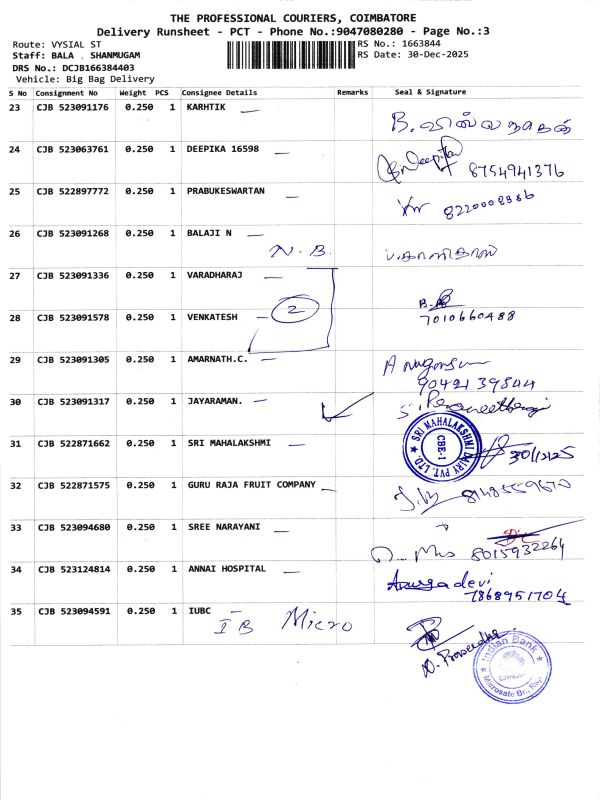 THE PROFESSIONAL COURIERS, COIMBATORE
Delivery Runsheet - PCT - Phone No.:9047080280 - Page No.:3
Route: VYSIAL ST
RS No.: 1663844
Staff: BALA , SHANMUGAM
RS Date: 30-Dec-2025
DRS No.: DCJB166384403
Vehicle: Big Bag Delivery
S No Consignment No Weight PCS Consignee Details Remarks Seal & Signature
23 CJB 523091176 0.250 1 KARHTIK —
B. விஸ்வநாதன்
24 CJB 523063761 0.250 1 DEEPIKA 16598 —
8754941376
25 CJB 522897772 0.250 1 PRABUKESWARTAN —
26 CJB 523091268 0.250 1 BALAJI N —
N. B.
27 CJB 523091336 0.250 1 VARADHARAJ
2
7010660488
28 CJB 523091578 0.250 1 VENKATESH —
29 CJB 523091305 0.250 1 AMARNATH.C. —
30 CJB 523091317 1 0.250 JAYARAMAN. —
SRI MAHALAKSHMI DAIRY PVT. LTD.
CBE-1
31 CJB 522871662 0.250 1 SRI MAHALAKSHMI —
30/12/25
32 CJB 522871575 0.250 1 GURU RAJA FRUIT COMPANY —
33 CJB 523094680 0.250 1 SREE NARAYANI —
8015932264
34 CJB 523124814 0.250 1 ANNAI HOSPITAL —
7868951704
35 CJB 523094591 0.250 1 IUBC —
IB Micro
Indian Bank